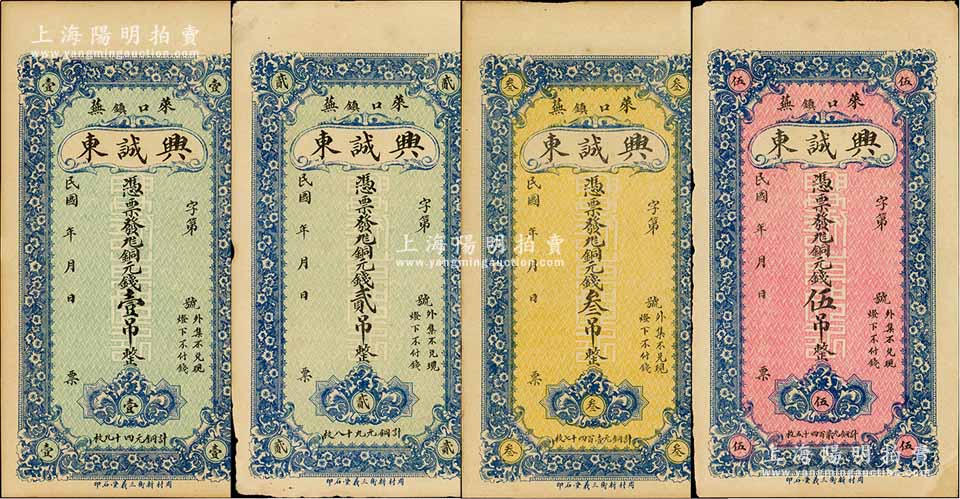 上海陽明拍賣
www.yangmingauction.com
壹 壹
萊口鎮蕪
興誠東
字第 號
憑票發兌銅元錢壹吊整
民國 年 月 日 票
外集不兌現
燈下不付錢
壹
計銅元四十九枚
壹 壹
周村新街三義堂石印
貳 貳
萊口鎮蕪
興誠東
字第 號
憑票發兌銅元錢貳吊整
民國 年 月 日 票
外集不兌現
燈下不付錢
貳
計銅元九十八枚
貳 貳
周村新街三義堂石印
上海陽明拍賣
www.yangmingauction.com
叁 叁
萊口鎮蕪
興誠東
字第 號
憑票發兌銅元錢叁吊整
民國 年 月 日 票
外集不兌現
燈下不付錢
叁
計銅元壹百四十七枚
叁 叁
周村新街三義堂石印
伍 伍
萊口鎮蕪
興誠東
字第 號
憑票發兌銅元錢伍吊整
民國 年 月 日 票
外集不兌現
燈下不付錢
伍
計銅元貳百四十五枚
伍 伍
周村新街三義堂石印
上海陽明拍賣
www.yangmingauction.com